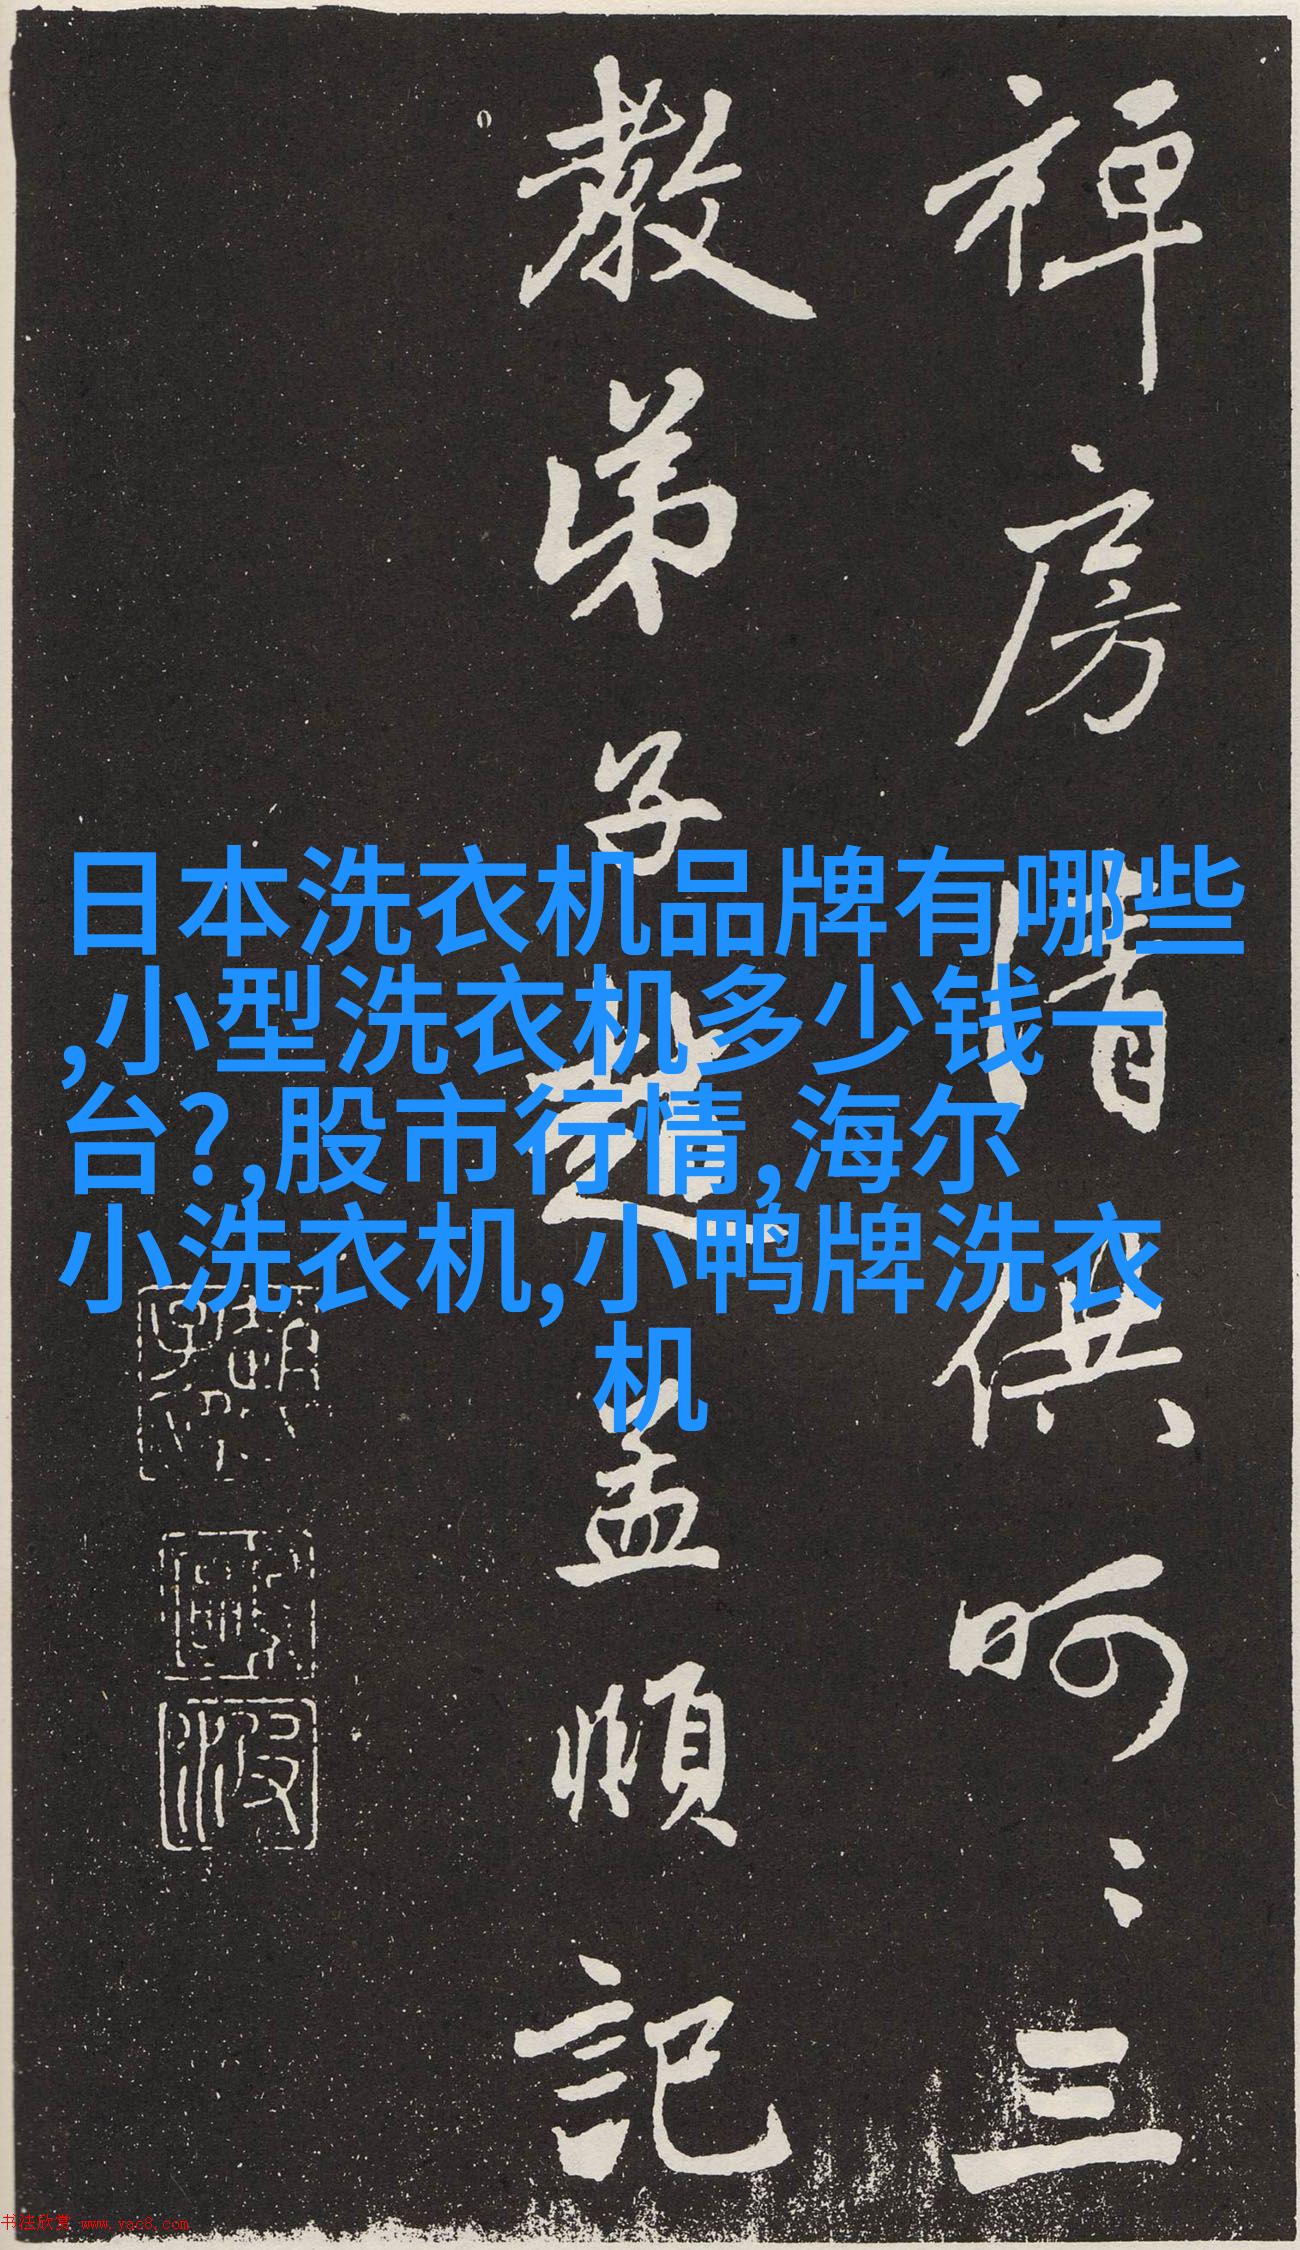 禅房清供呵〻三
教弟子趙孟頫記
日本洗衣机品牌有哪些
,小型洗衣机多少钱一
台?,股市行情,海尔
小洗衣机,小鸭牌洗衣
机
书法欣赏 www.yac8.com